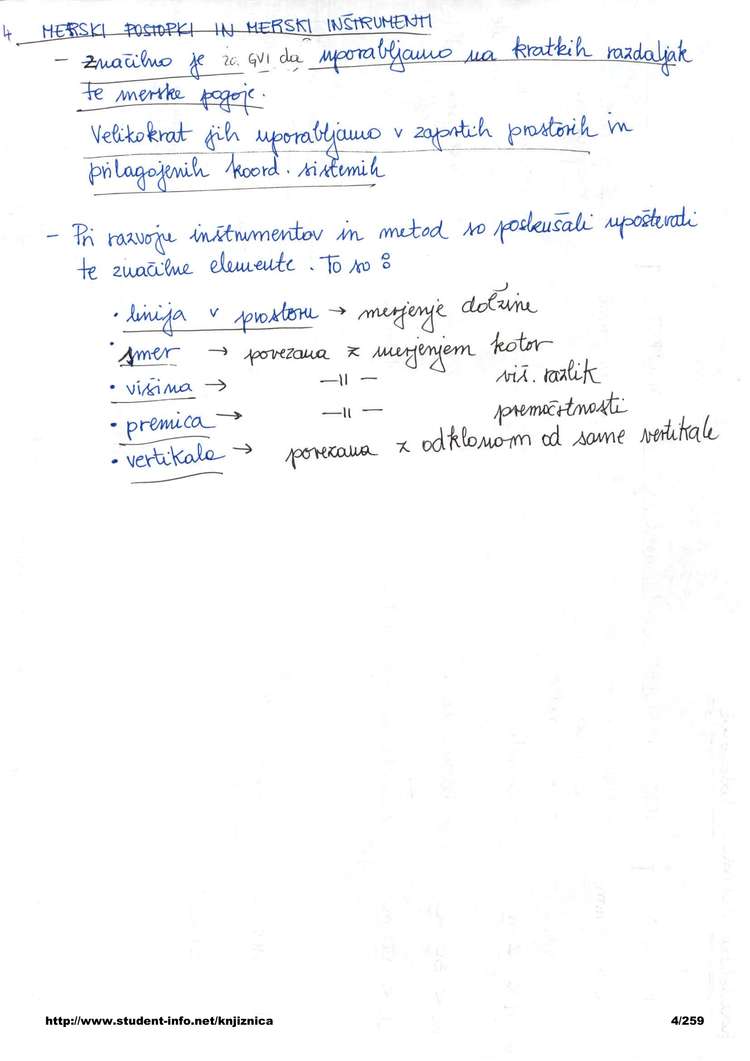 4 MERSKI POSTOPKI IN MERSKI INŠTRUMENTI
- Značilno je za GVI da uporabljamo na kratkih razdaljah
te merske pogoje.
Velikokrat jih uporabljamo v zaprtih prostorih in
prilagojenih koord. sistemih
- Pri razvoju inštrumentov in metod so poskušali upoštevati
te značilne elemente. To so :
• linija v prostoru → merjenje dolžine
• smer → povezana z merjenjem kotov
• višina → —||— viš. razlik
• premica → —||— premočrtnosti
• vertikala → povezana z odklonom od same vertikale
http://www.student-info.net/knjiznica 4/259